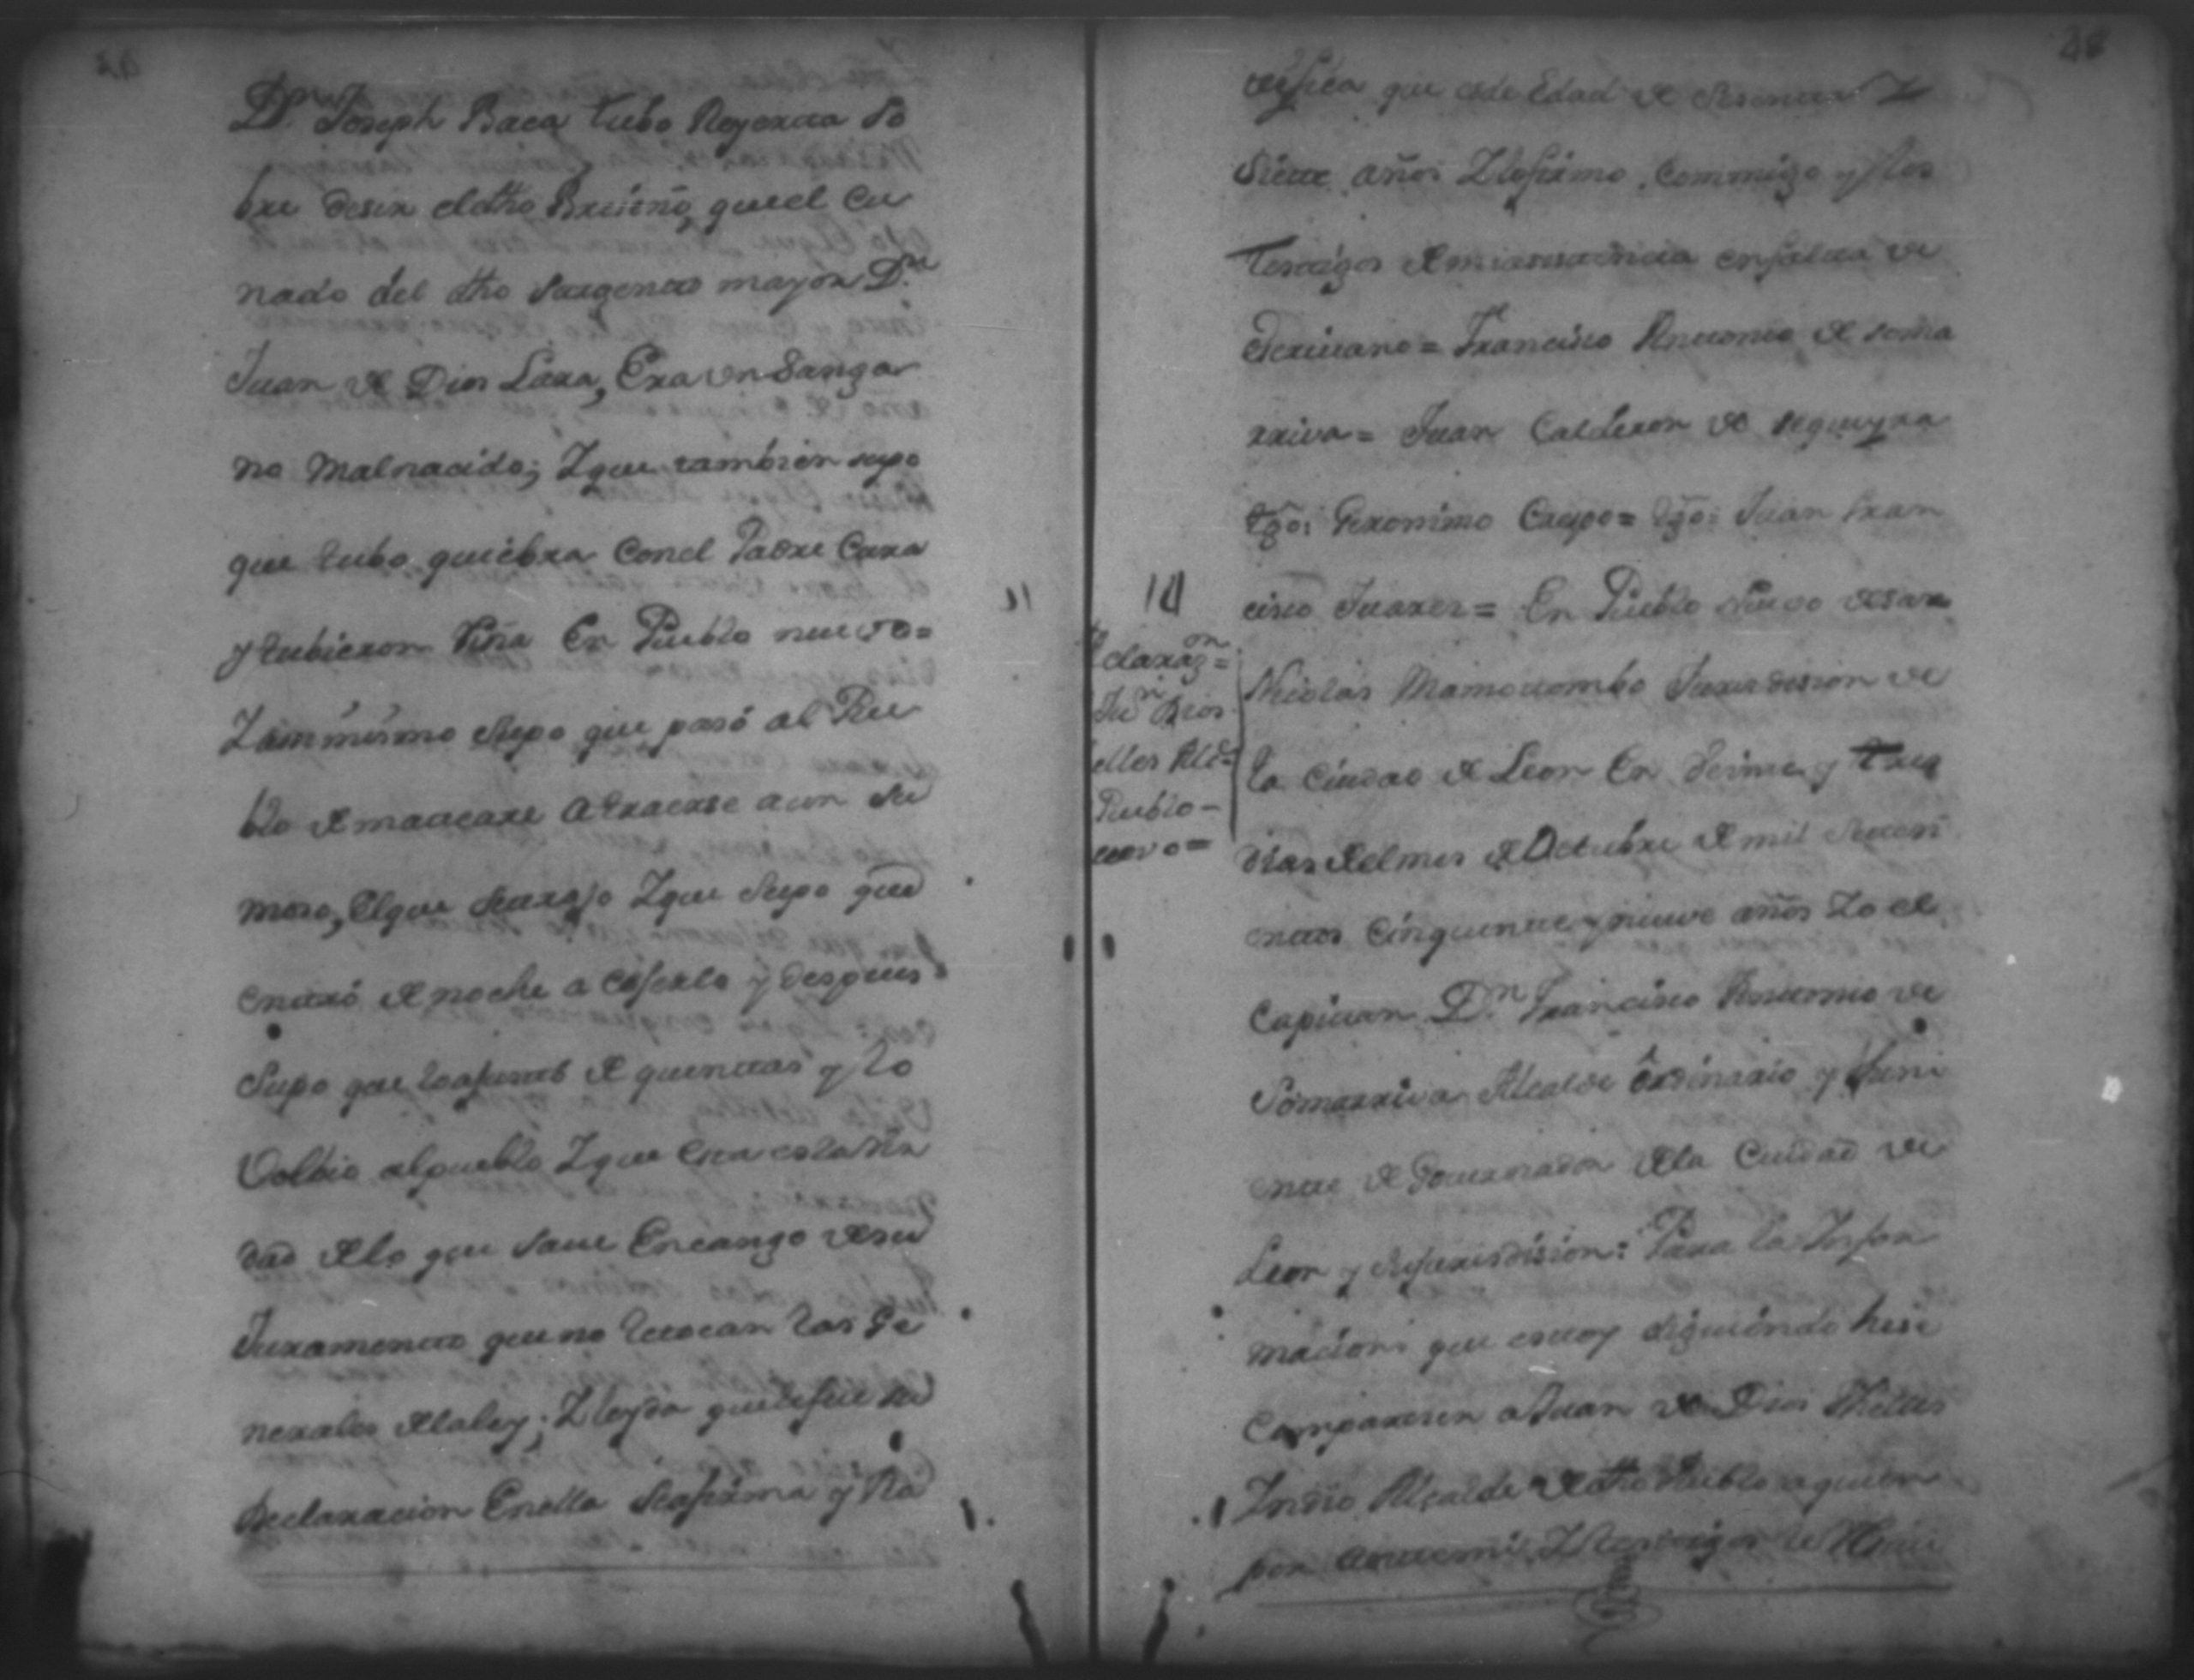 Dn Joseph Baca tubo Reyerta so
bre desir el dho Briseño, que el cu
nado del dho sargento mayor Dn
Juan de Dios Lara, Era un Sanga
no Malnacido; Y que tambien supo
que tubo quiebra Con el Padre Cura
y tubieron Riña En Pueblo nuevo=
Y ami mismo supo que pasó al Pue
blo de mateare a traerse a un su
moso, El que Y que Supo que
entró de noche a coserlo y despues
Supo que de quentas y lo
Volbio al pueblo Y que Era es la Ver
dad de lo que save En cargo de su
Juramento que no le tocan las Ge
nerales de la ley; Y leyda que le fue su
Declaracion En ella se afirma y Ra
tifica que es de Edad de sesenta Y
Siete años Y lo firmo, Commigo y los
Testigos de mi asistencia en falta de
Escrivano = Francisco Antonio de soma
rriva = Juan Calderon de sequeyra
tgo: Geronimo Crespo = tgo: Juan Fran
cisco Juares = En Pueblo Nuevo de San
Nicolas Momotombo Jurisdision de
la Ciudad de Leon En veinte y tres
dias del mes de Octubre de mil setesi
entos Cinquenta y nueve años Yo el
Capitan Dn Francisco Antonio de
Somarriva Alcalde Ordinario y theni
ente de Governador de la Ciudad de
Leon y su jurisdision: Para la Ynfor
macion que estoy siguiendo hise
Compareser a Juan de Dios
Yndio Alcalde de dho Pueblo a quien
por ante mi Y testigos le
14
clarazon=
Jun Dios
Alde
Pueblo-
uevo=